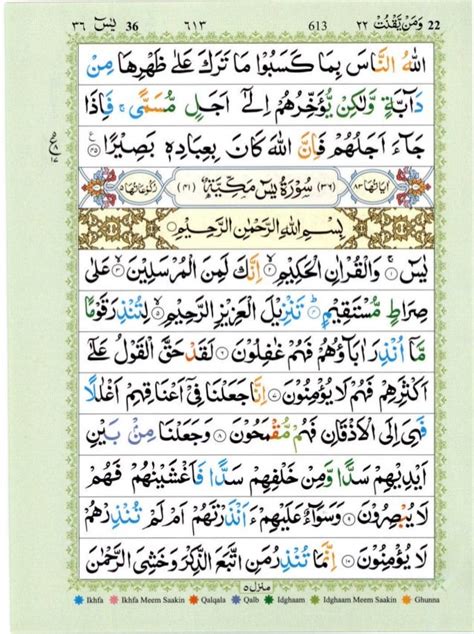 22 وَمَنْ يَّقْنُتْ ٢٢ 613 ٦١٣ 36 يٰسٓ ٣٦
اللّٰهُ النَّاسَ بِمَا كَسَبُوْا مَا تَرَكَ عَلٰى ظَهْرِهَا مِنْ
دَآبَّةٍ وَّلٰكِنْ يُّؤَخِّرُهُمْ اِلٰٓى اَجَلٍ مُّسَمًّى ۚ فَاِذَا
جَآءَ اَجَلُهُمْ فَاِنَّ اللّٰهَ كَانَ بِعِبَادِهٖ بَصِيْرًا ﴿٤٥﴾
اٰيَاتُهَا ٨٣ (٣٦) سُوْرَةُ يٰسٓ مَكِّيَّةٌ (٤١) رُكُوْعَاتُهَا ٥
بِسْمِ اللّٰهِ الرَّحْمٰنِ الرَّحِيْمِ
يٰسٓ ﴿١﴾ وَالْقُرْاٰنِ الْحَكِيْمِ ﴿٢﴾ اِنَّكَ لَمِنَ الْمُرْسَلِيْنَ ﴿٣﴾ عَلٰى
صِرَاطٍ مُّسْتَقِيْمٍ ﴿٤﴾ تَنْزِيْلَ الْعَزِيْزِ الرَّحِيْمِ ﴿٥﴾ لِتُنْذِرَ قَوْمًا
مَّآ اُنْذِرَ اٰبَآؤُهُمْ فَهُمْ غٰفِلُوْنَ ﴿٦﴾ لَقَدْ حَقَّ الْقَوْلُ عَلٰٓى
اَكْثَرِهِمْ فَهُمْ لَا يُؤْمِنُوْنَ ﴿٧﴾ اِنَّا جَعَلْنَا فِيْٓ اَعْنَاقِهِمْ اَغْلٰلًا
فَهِىَ اِلَى الْاَذْقَانِ فَهُمْ مُّقْمَحُوْنَ ﴿٨﴾ وَجَعَلْنَا مِنْۢ بَيْنِ
اَيْدِيْهِمْ سَدًّا وَّمِنْ خَلْفِهِمْ سَدًّا فَاَغْشَيْنٰهُمْ فَهُمْ
لَا يُبْصِرُوْنَ ﴿٩﴾ وَسَوَآءٌ عَلَيْهِمْ ءَاَنْذَرْتَهُمْ اَمْ لَمْ تُنْذِرْهُمْ
لَا يُؤْمِنُوْنَ ﴿١٠﴾ اِنَّمَا تُنْذِرُ مَنِ اتَّبَعَ الذِّكْرَ وَخَشِىَ الرَّحْمٰنَ
منزل ٥
Ikhfa Ikhfa Meem Saakin Qalqala Qalb Idghaam Idghaam Meem Saakin Ghunna